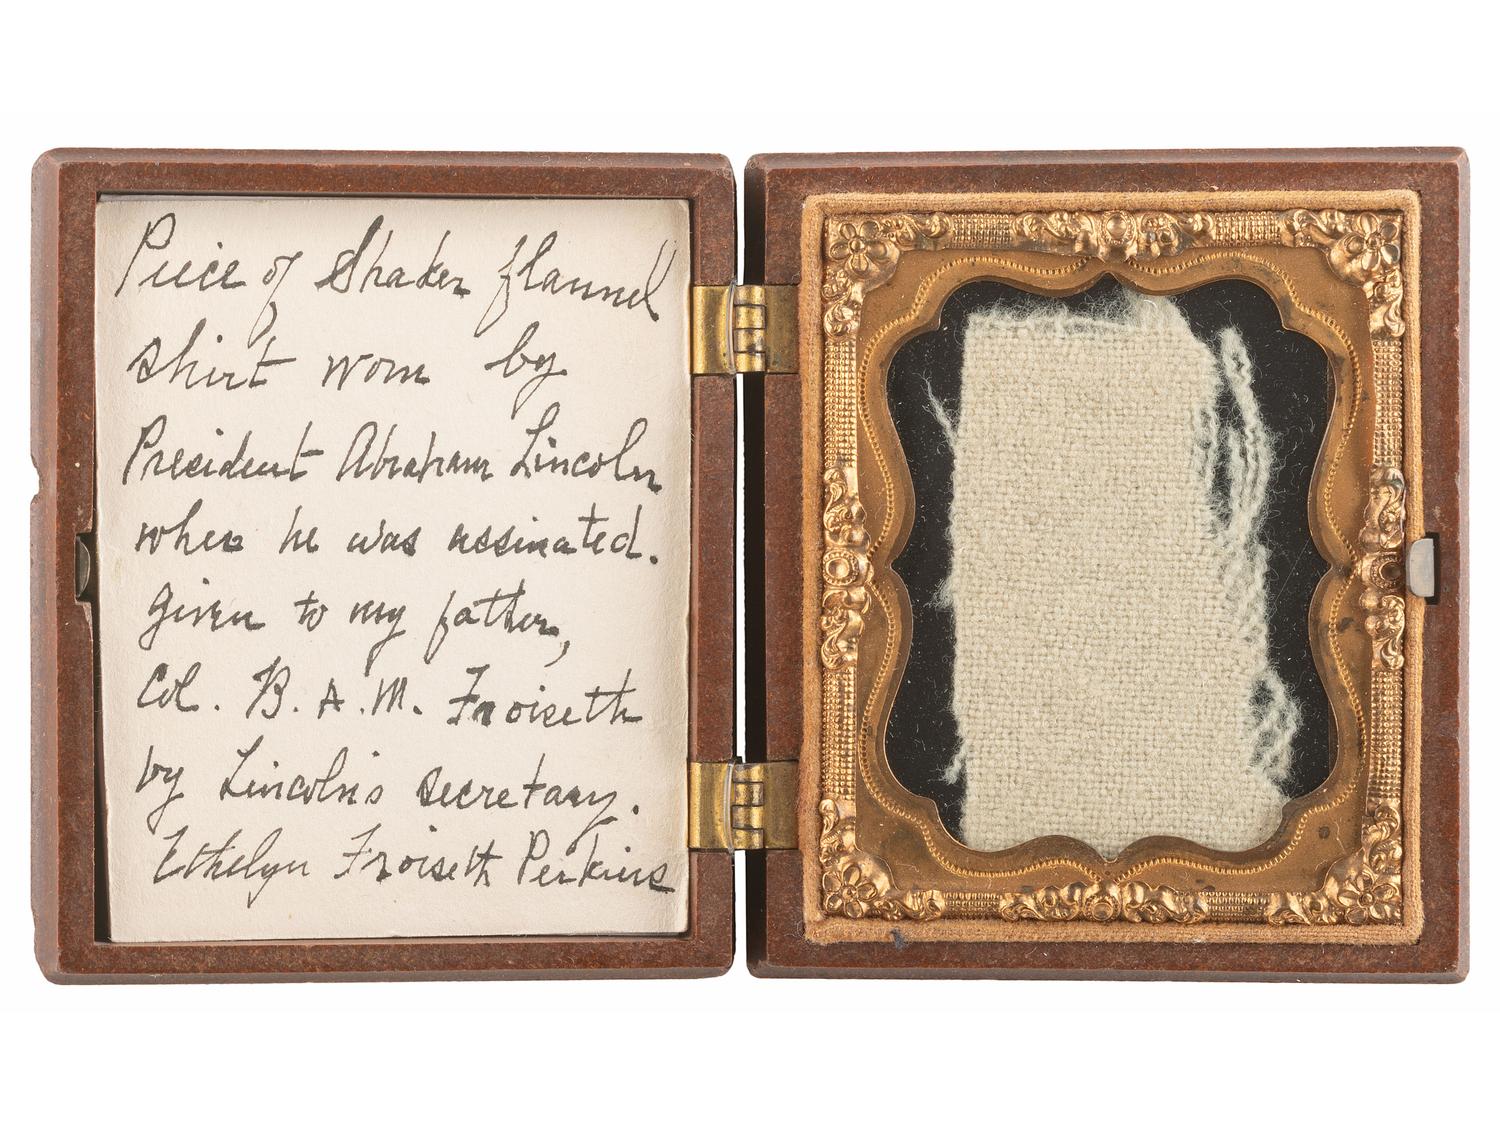 Piece of Shaker flannel
shirt worn by
President Abraham Lincoln
when he was assinated.
given to my father,
Col. B. A. M. Froiseth
by Lincoln's secretary.
Ethelyn Froiseth Perkins